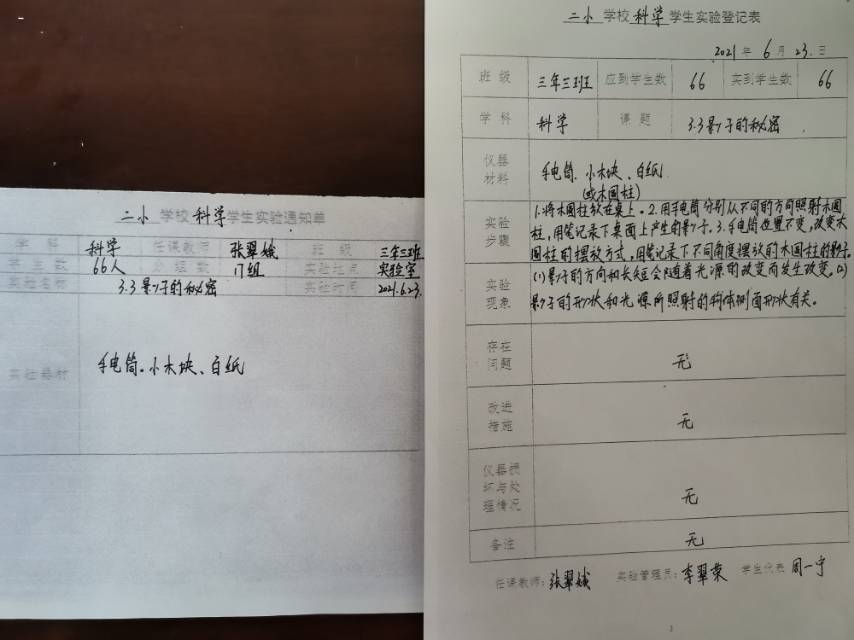 二小 学校 科学 学生实验通知单
学科 科学 任课教师 张翠娥 班级 三年三班
学生数 66人 分组数 17组 实验地点 实验室
实验名称 3.3影子的秘密 实验时间 2021.6.23.
实验器材 手电筒、小木块、白纸
二小 学校 科学 学生实验登记表
2021年 6月 23.日
班级 三年三班 应到学生数 66 实到学生数 66
学科 科学 课题 3.3影子的秘密
仪器材料 手电筒、小木块、白纸
(或木圆柱)
实验步骤 1.将木圆柱放在桌上。2.用手电筒分别从不同的方向照射木圆
柱,用笔记录下桌面上产生的影子。3.手电筒位置不变,改变木
圆柱的摆放方式,用笔记录下不同角度摆放的木圆柱的影子。
实验现象 (1)影子的方向和长短会随着光源的改变而发生改变。(2)
影子的形状和光源所照射的物体侧面形状有关。
存在问题 无
改进措施 无
仪器损坏与处理情况 无
备注 无
任课教师:张翠娥 实验管理员:李翠荣 学生代表 周一宁